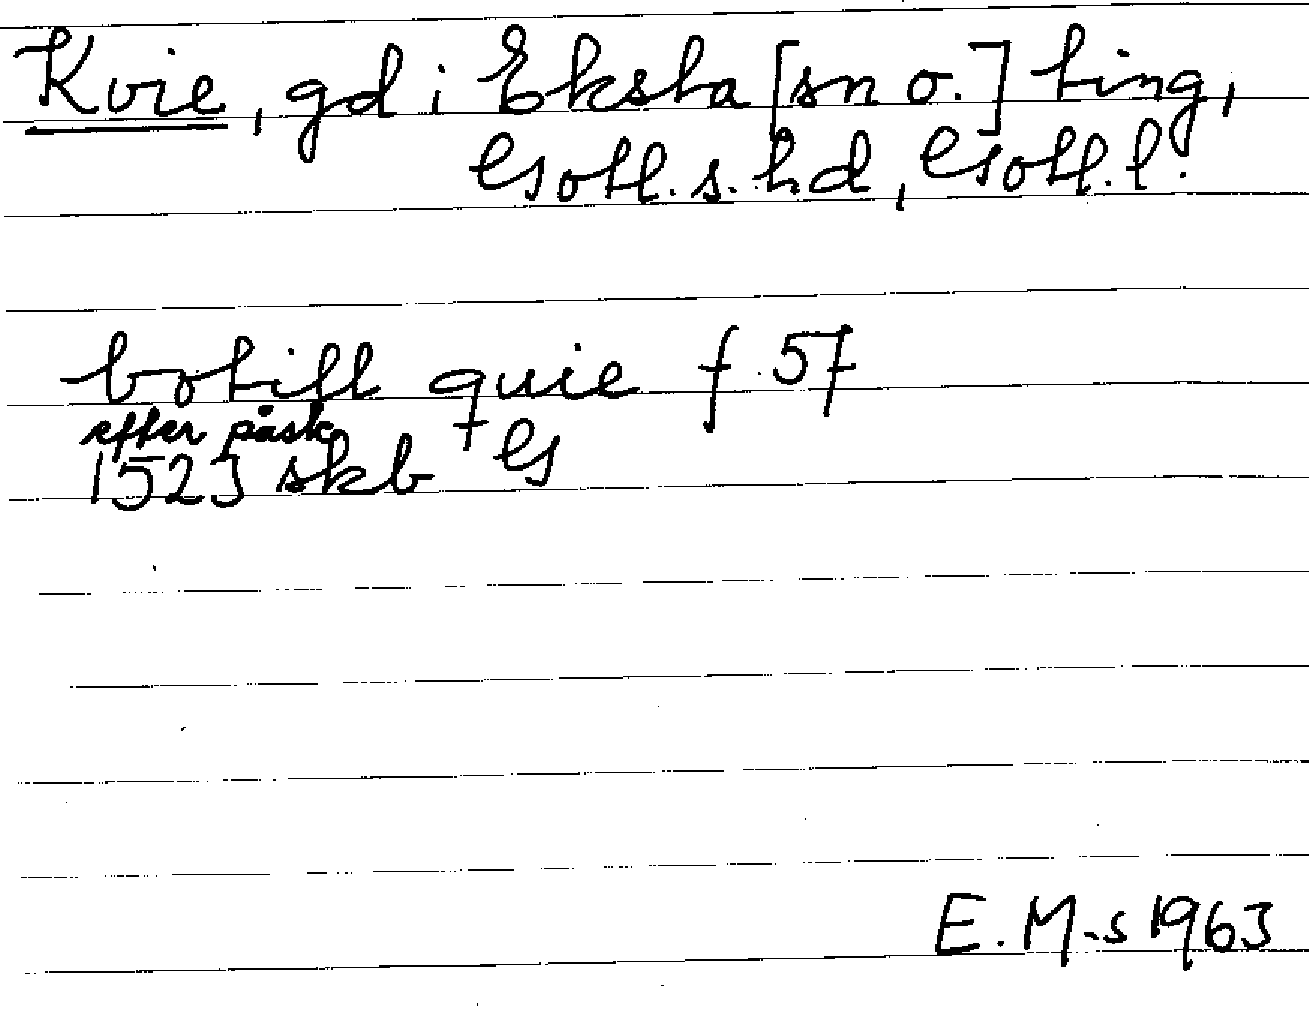 Kvie, gd i Eksta [sn o.] ting,
Gotl. s. hd, Gotl. l.
botill quie f. 57
efter påsk
1523 skb G
E. M-s 1963